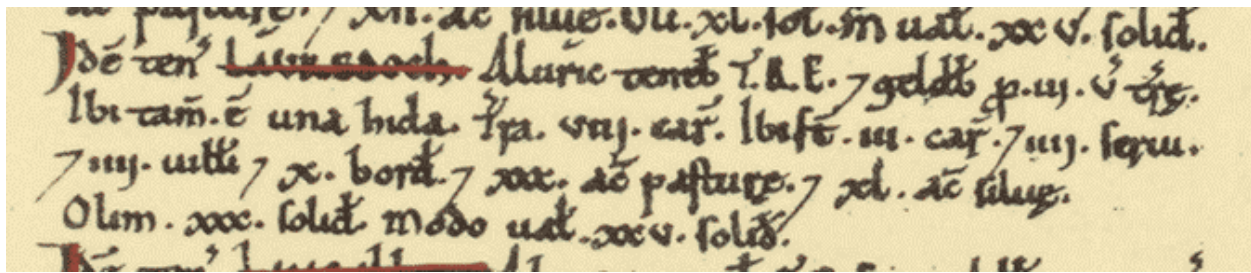 ac pasture. ⁊ xii. ac siluę. Oli. xl. sol. m̄ ual̄. xxv. solid̄.
Idē ten̄ Aluric teneb̄ T.R.E. ⁊ geldb̄ p. iii. v̄ tr̄ę.
Ibi tam̄. ē una hida. Tr̄a. viii. car̄. Ibi st̄. iii. car̄. ⁊ iiii. serui.
⁊ iiii. uill̄i ⁊ x. bord̄. ⁊ xxx. ac̄ pasturę. ⁊ xl. ac̄ siluę.
Olim. xxx. solid̄. modo ual̄. xxv. solid̄.
Idē ten̄